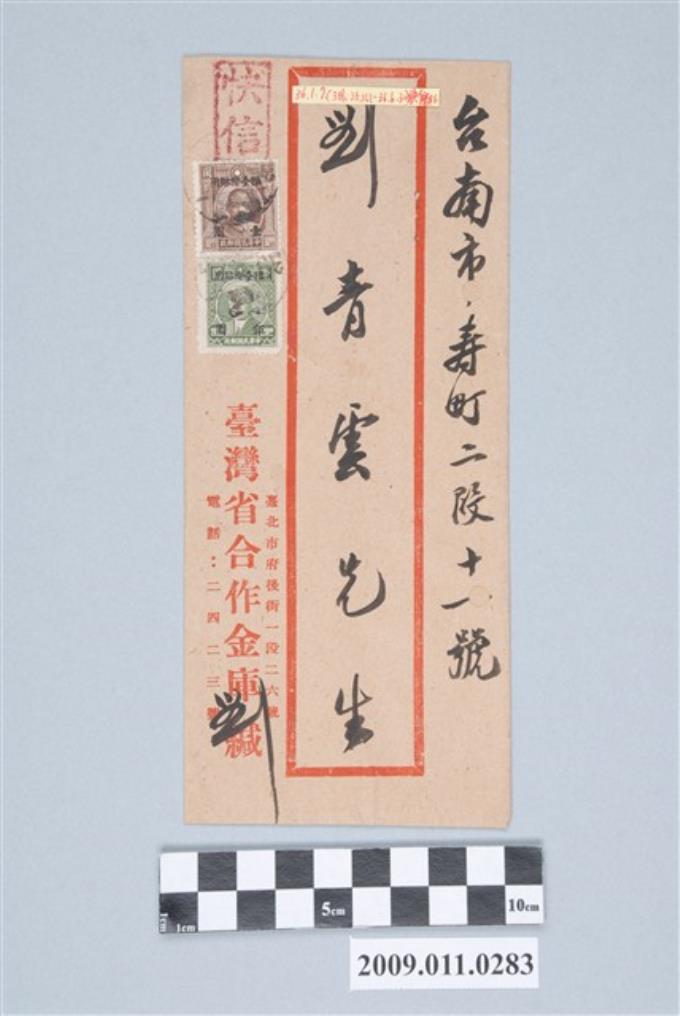 台南市・寿町二段十一號
劉青雲先生
快信
臺北市府後街一段二六號
臺灣省合作金庫緘
電話：二四二三號
劉
限臺灣貼用
1cm
1cm
5cm
10cm
2009.011.0283